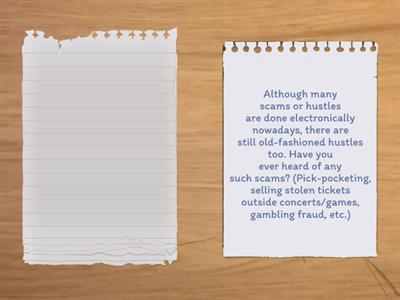 Although many
scams or hustles
are done electronically
nowadays, there are
still old-fashioned hustles
too. Have you
ever heard of any
such scams? (Pick-pocketing,
selling stolen tickets
outside concerts/games,
gambling fraud, etc.)